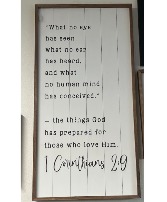 "What no eye
has seen
what no ear
has heard,
and what
no human mind
has conceived."
– the things God
has prepared for
those who love Him.
1 Corinthians 2:9